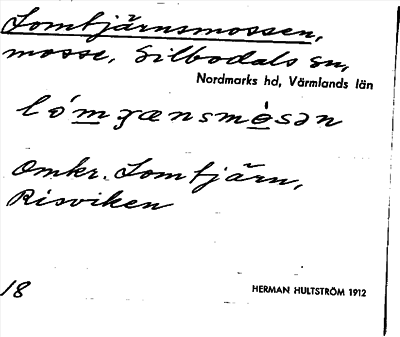 Lomtjärnsmossen,
mosse, Silbodals sn,
Nordmarks hd, Värmlands län
lómʒænsmèsən
Omkr. Lomtjärn,
Risviken
18
HERMAN HULTSTRÖM 1912